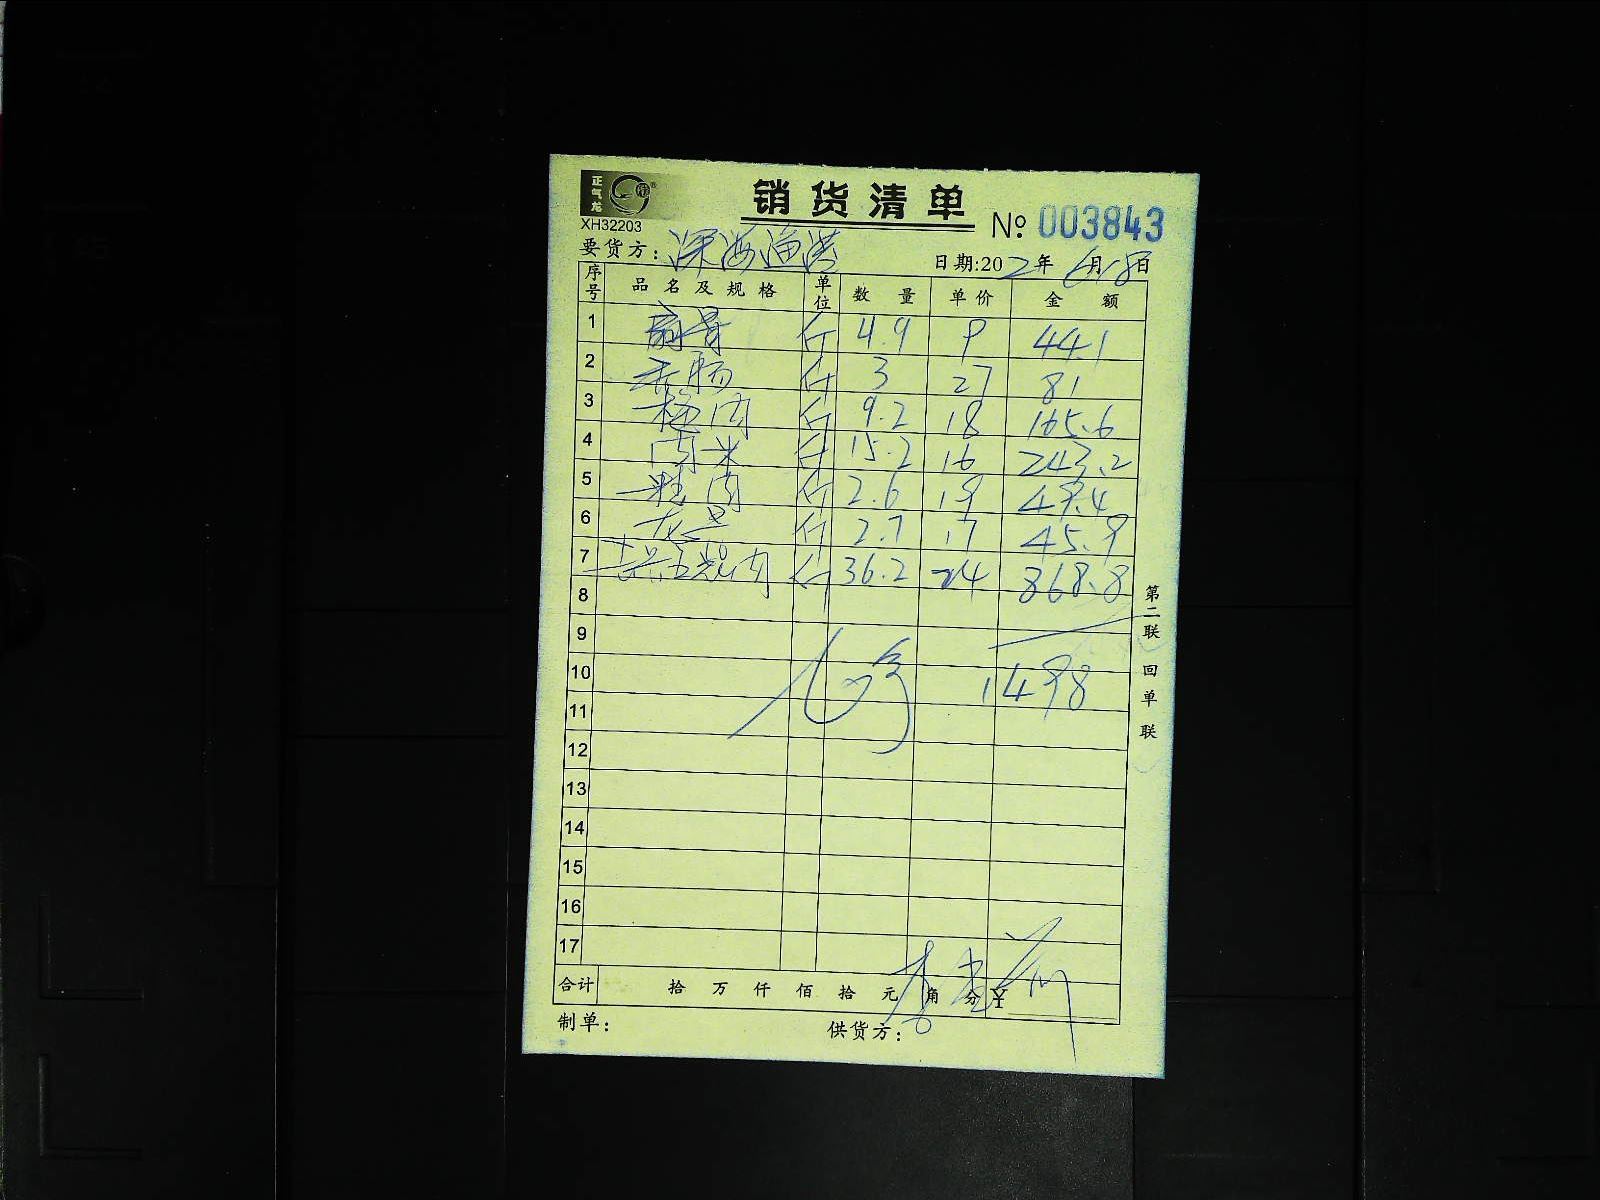 正气龙
XH32203
销货清单
№ 003843
要货方：深海渔港
日期:202年6月18日
序号 品名及规格 单位 数量 单价 金额
1 扇骨 斤 4.9 9 44.1
2 香肠 斤 3 27 81
3 梅肉 斤 9.2 18 165.6
4 肉米 斤 15.2 16 243.2
5 肉 斤 2.6 19 49.4
6 龙骨 斤 2.7 17 45.9
7 肉 斤 36.2 24 868.8
8
9
10 1498
11
12
13
14
15
16
17
合计 拾 万 仟 佰 拾 元 角 分 ￥
制单：
供货方：
第二联 回单联